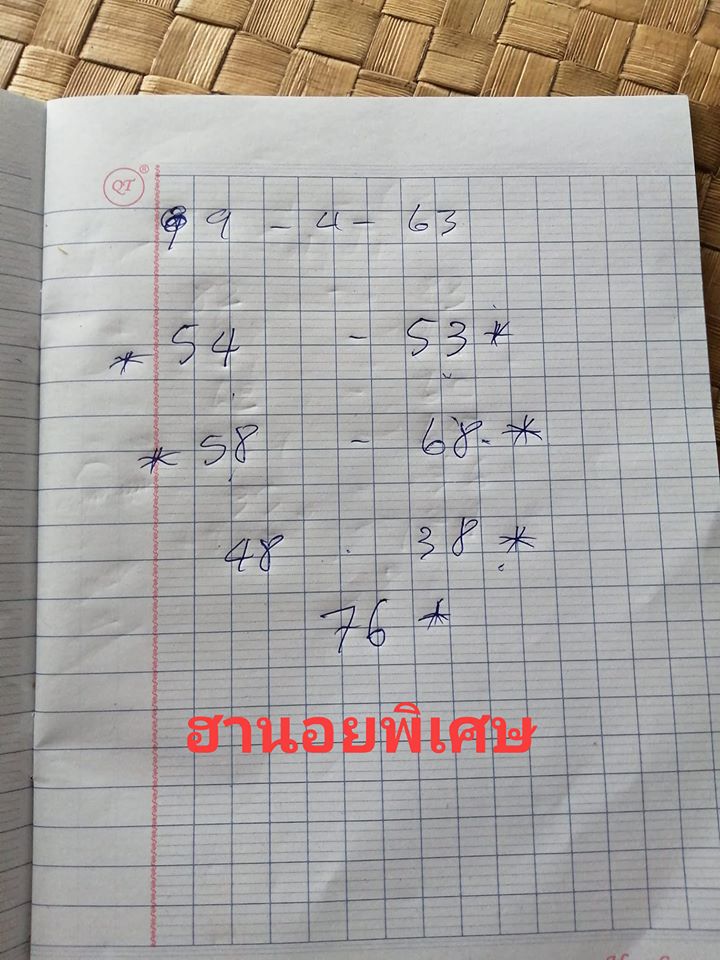 QT
99 - 4 - 63
* 54 - 53 *
* 58 - 68. *
48 . 38 *
76 *
ฮานอยพิเศษ